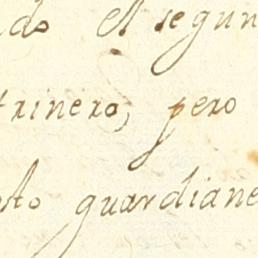 ado el segun
trinero, pero
nto guardiane